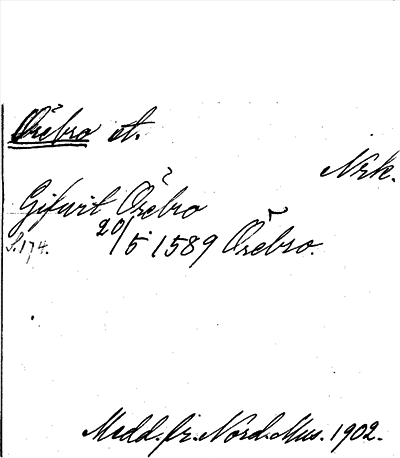 Örebro st.
Nrk.
Gifwit Örebro
S. 174. 20/5 1589 Örebro.
Medd. fr. Nord. Mus. 1902.